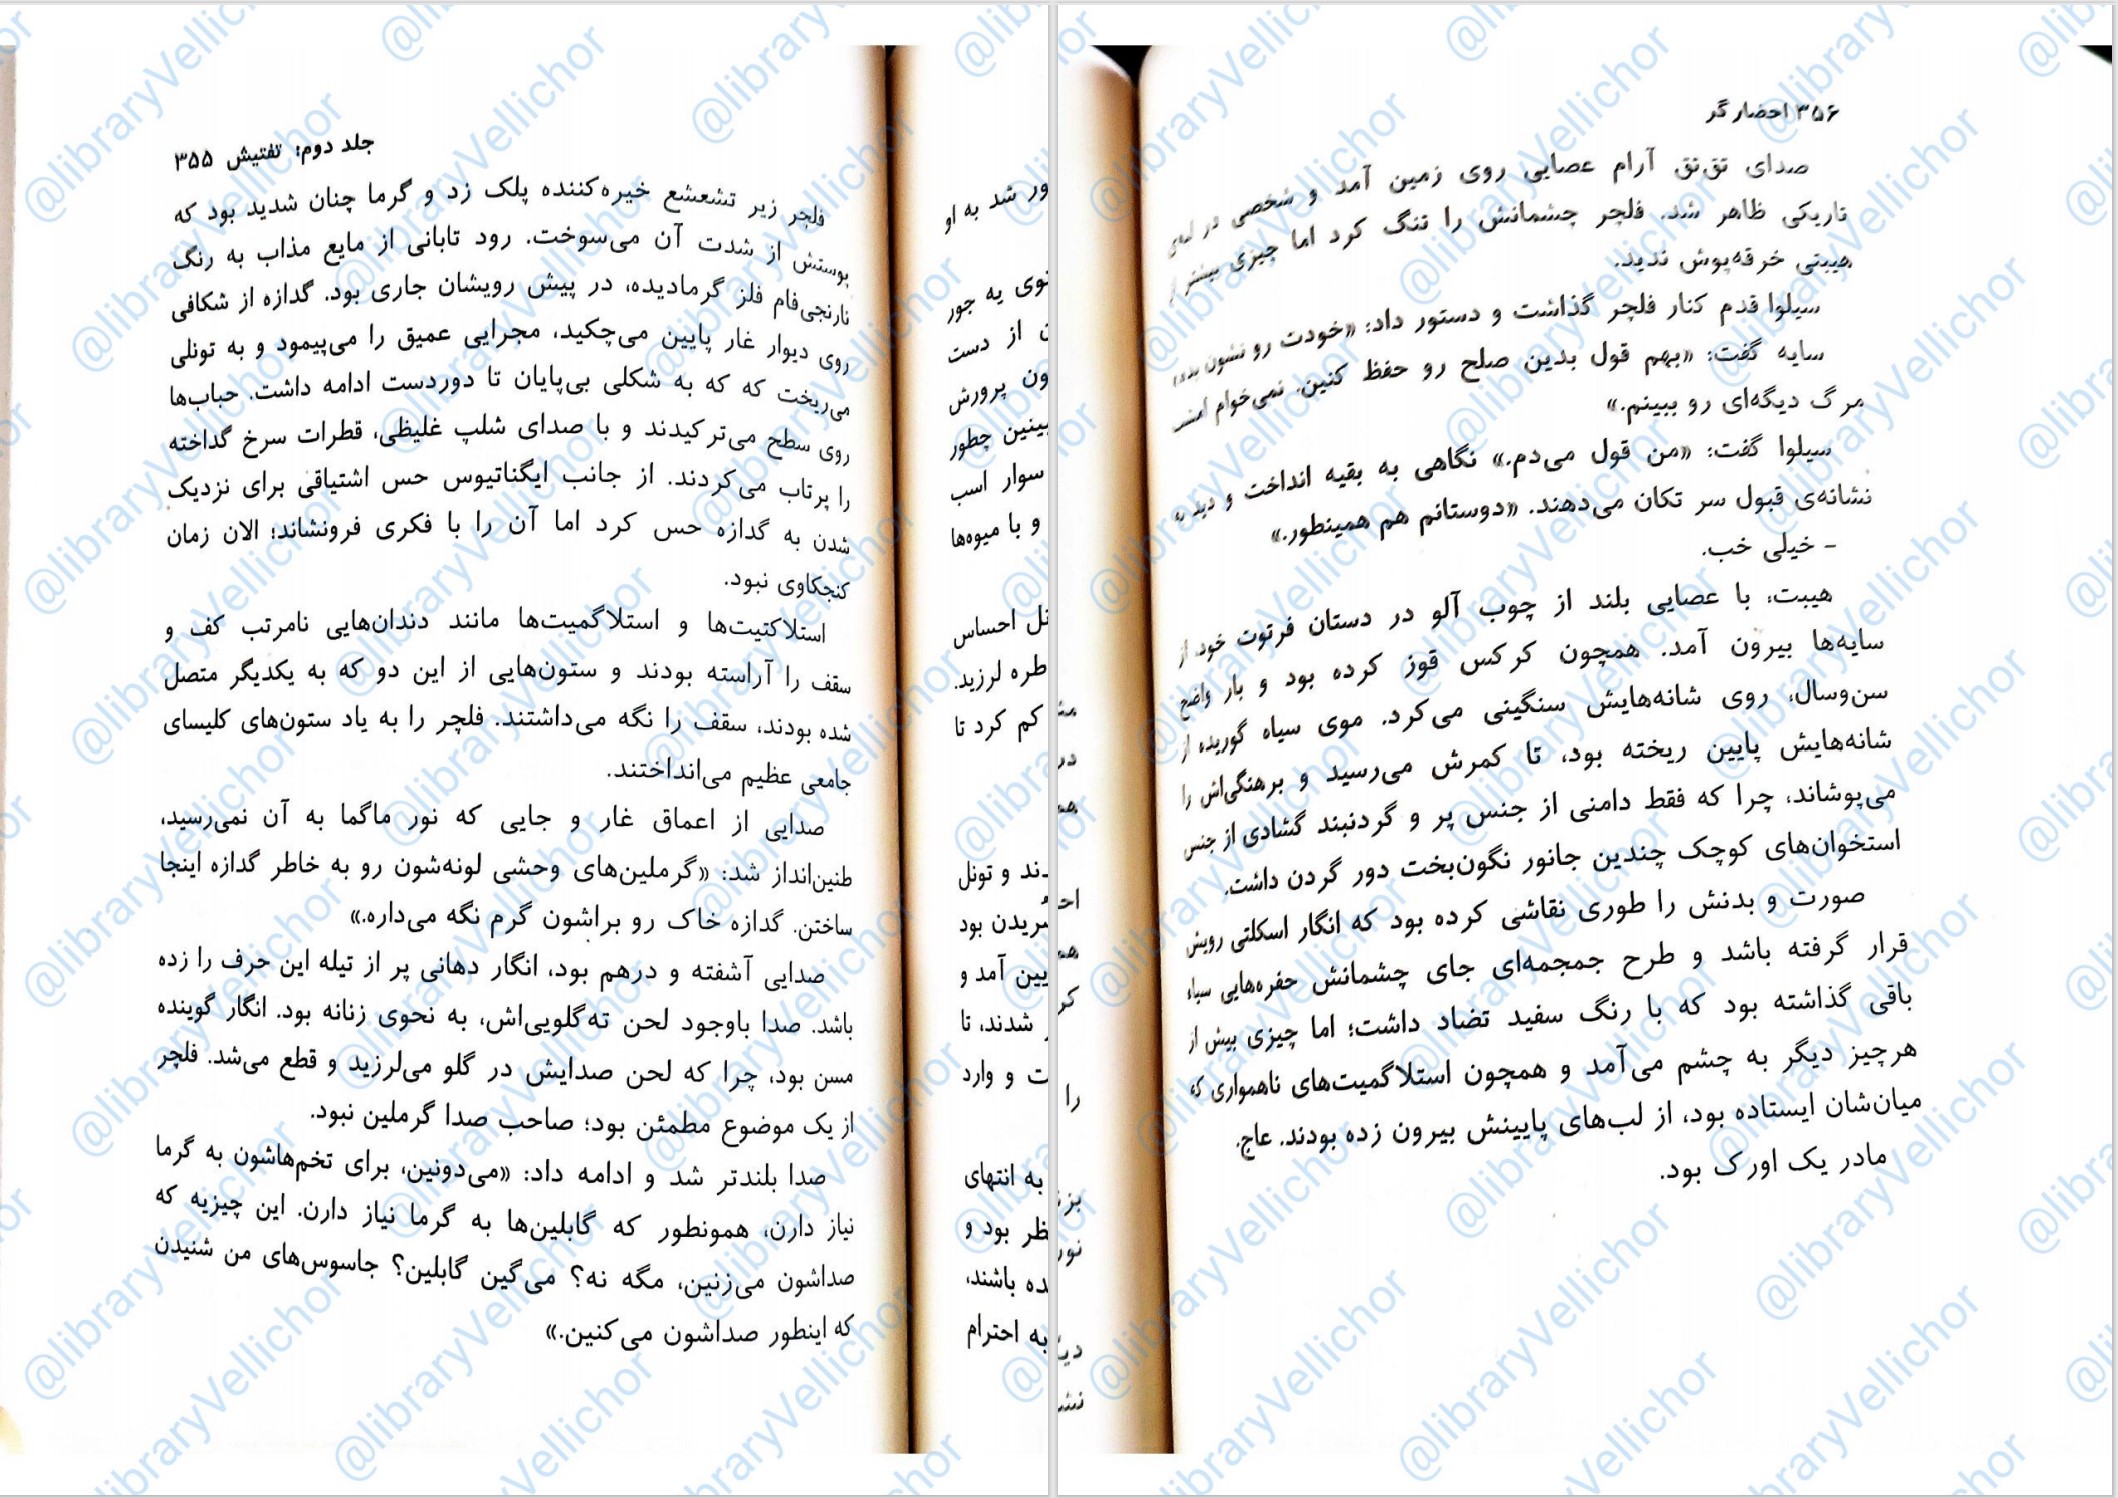 جلد دوم: تفتیش ۳۵۵
فلچر زیر تشعشع خیره‌کننده پلک زد و گرما چنان شدید بود که
پوستش از شدت آن می‌سوخت. رود تابانی از مایع مذاب به رنگ
نارنجی‌فام فلز گرمادیده، در پیش رویشان جاری بود. گدازه از شکافی
روی دیوار غار پایین می‌چکید، مجرایی عمیق را می‌پیمود و به تونلی
می‌ریخت که که به شکلی بی‌پایان تا دوردست ادامه داشت. حباب‌ها
روی سطح می‌ترکیدند و با صدای شلپ غلیظی، قطرات سرخ گداخته
را پرتاب می‌کردند. از جانب ایگناتیوس حس اشتیاقی برای نزدیک
شدن به گدازه حس کرد اما آن را با فکری فرونشاند؛ الان زمان
کنجکاوی نبود.
استلاکتیت‌ها و استلاگمیت‌ها مانند دندان‌هایی نامرتب کف و
سقف را آراسته بودند و ستون‌هایی از این دو که به یکدیگر متصل
شده بودند، سقف را نگه می‌داشتند. فلچر را به یاد ستون‌های کلیسای
جامعی عظیم می‌انداختند.
صدایی از اعماق غار و جایی که نور ماگما به آن نمی‌رسید،
طنین‌انداز شد: «گرملین‌های وحشی لونه‌شون رو به خاطر گدازه اینجا
ساختن. گدازه خاک رو براشون گرم نگه می‌داره.»
صدایی آشفته و درهم بود، انگار دهانی پر از تیله این حرف را زده
باشد. صدا باوجود لحن ته‌گلویی‌اش، به نحوی زنانه بود. انگار گوینده
مسن بود، چرا که لحن صدایش در گلو می‌لرزید و قطع می‌شد. فلچر
از یک موضوع مطمئن بود؛ صاحب صدا گرملین نبود.
صدا بلندتر شد و ادامه داد: «می‌دونین، برای تخم‌هاشون به گرما
نیاز دارن، همونطور که گابلین‌ها به گرما نیاز دارن. این چیزیه که
صداشون می‌زنین، مگه نه؟ می‌گین گابلین؟ جاسوس‌های من شنیدن
که اینطور صداشون می‌کنین.»
ور شد به او
توی یه جور
از دست
ون پرورش
بینین چطور
سوار اسب
و با میوه‌ها
نل احساس
طره لرزید.
کم کرد تا
دند و تونل
سریدن بود
یین آمد و
شدند، تا
ت و وارد
به انتهای
ظر بود و
ده باشند،
به احترام
۳۵۶ احضارگر
صدای تق‌تق آرام عصایی روی زمین آمد و شخصی در لبه‌ی
تاریکی ظاهر شد. فلچر چشمانش را تنگ کرد اما چیزی بیشتر از
هیبتی خرقه‌پوش ندید.
سیلوا قدم کنار فلچر گذاشت و دستور داد: «خودت رو نشون بده.»
سایه گفت: «بهم قول بدین صلح رو حفظ کنین. نمی‌خوام امشب
مرگ دیگه‌ای رو ببینم.»
سیلوا گفت: «من قول می‌دم.» نگاهی به بقیه انداخت و دید به
نشانه‌ی قبول سر تکان می‌دهند. «دوستانم هم همینطور.»
- خیلی خب.
هیبت، با عصایی بلند از چوب آلو در دستان فرتوت خود، از
سایه‌ها بیرون آمد. همچون کرکس قوز کرده بود و بار واضح
سن‌وسال، روی شانه‌هایش سنگینی می‌کرد. موی سیاه گوریده از
شانه‌هایش پایین ریخته بود، تا کمرش می‌رسید و برهنگی‌اش را
می‌پوشاند، چرا که فقط دامنی از جنس پر و گردنبند گشادی از جنس
استخوان‌های کوچک چندین جانور نگون‌بخت دور گردن داشت.
صورت و بدنش را طوری نقاشی کرده بود که انگار اسکلتی رویش
قرار گرفته باشد و طرح جمجمه‌ای جای چشمانش حفره‌هایی سیاه
باقی گذاشته بود که با رنگ سفید تضاد داشت؛ اما چیزی بیش از
هرچیز دیگر به چشم می‌آمد و همچون استلاگمیت‌های ناهمواری که
میان‌شان ایستاده بود، از لب‌های پایینش بیرون زده بودند. عاج.
مادر یک اورک بود.
@libraryVellichor